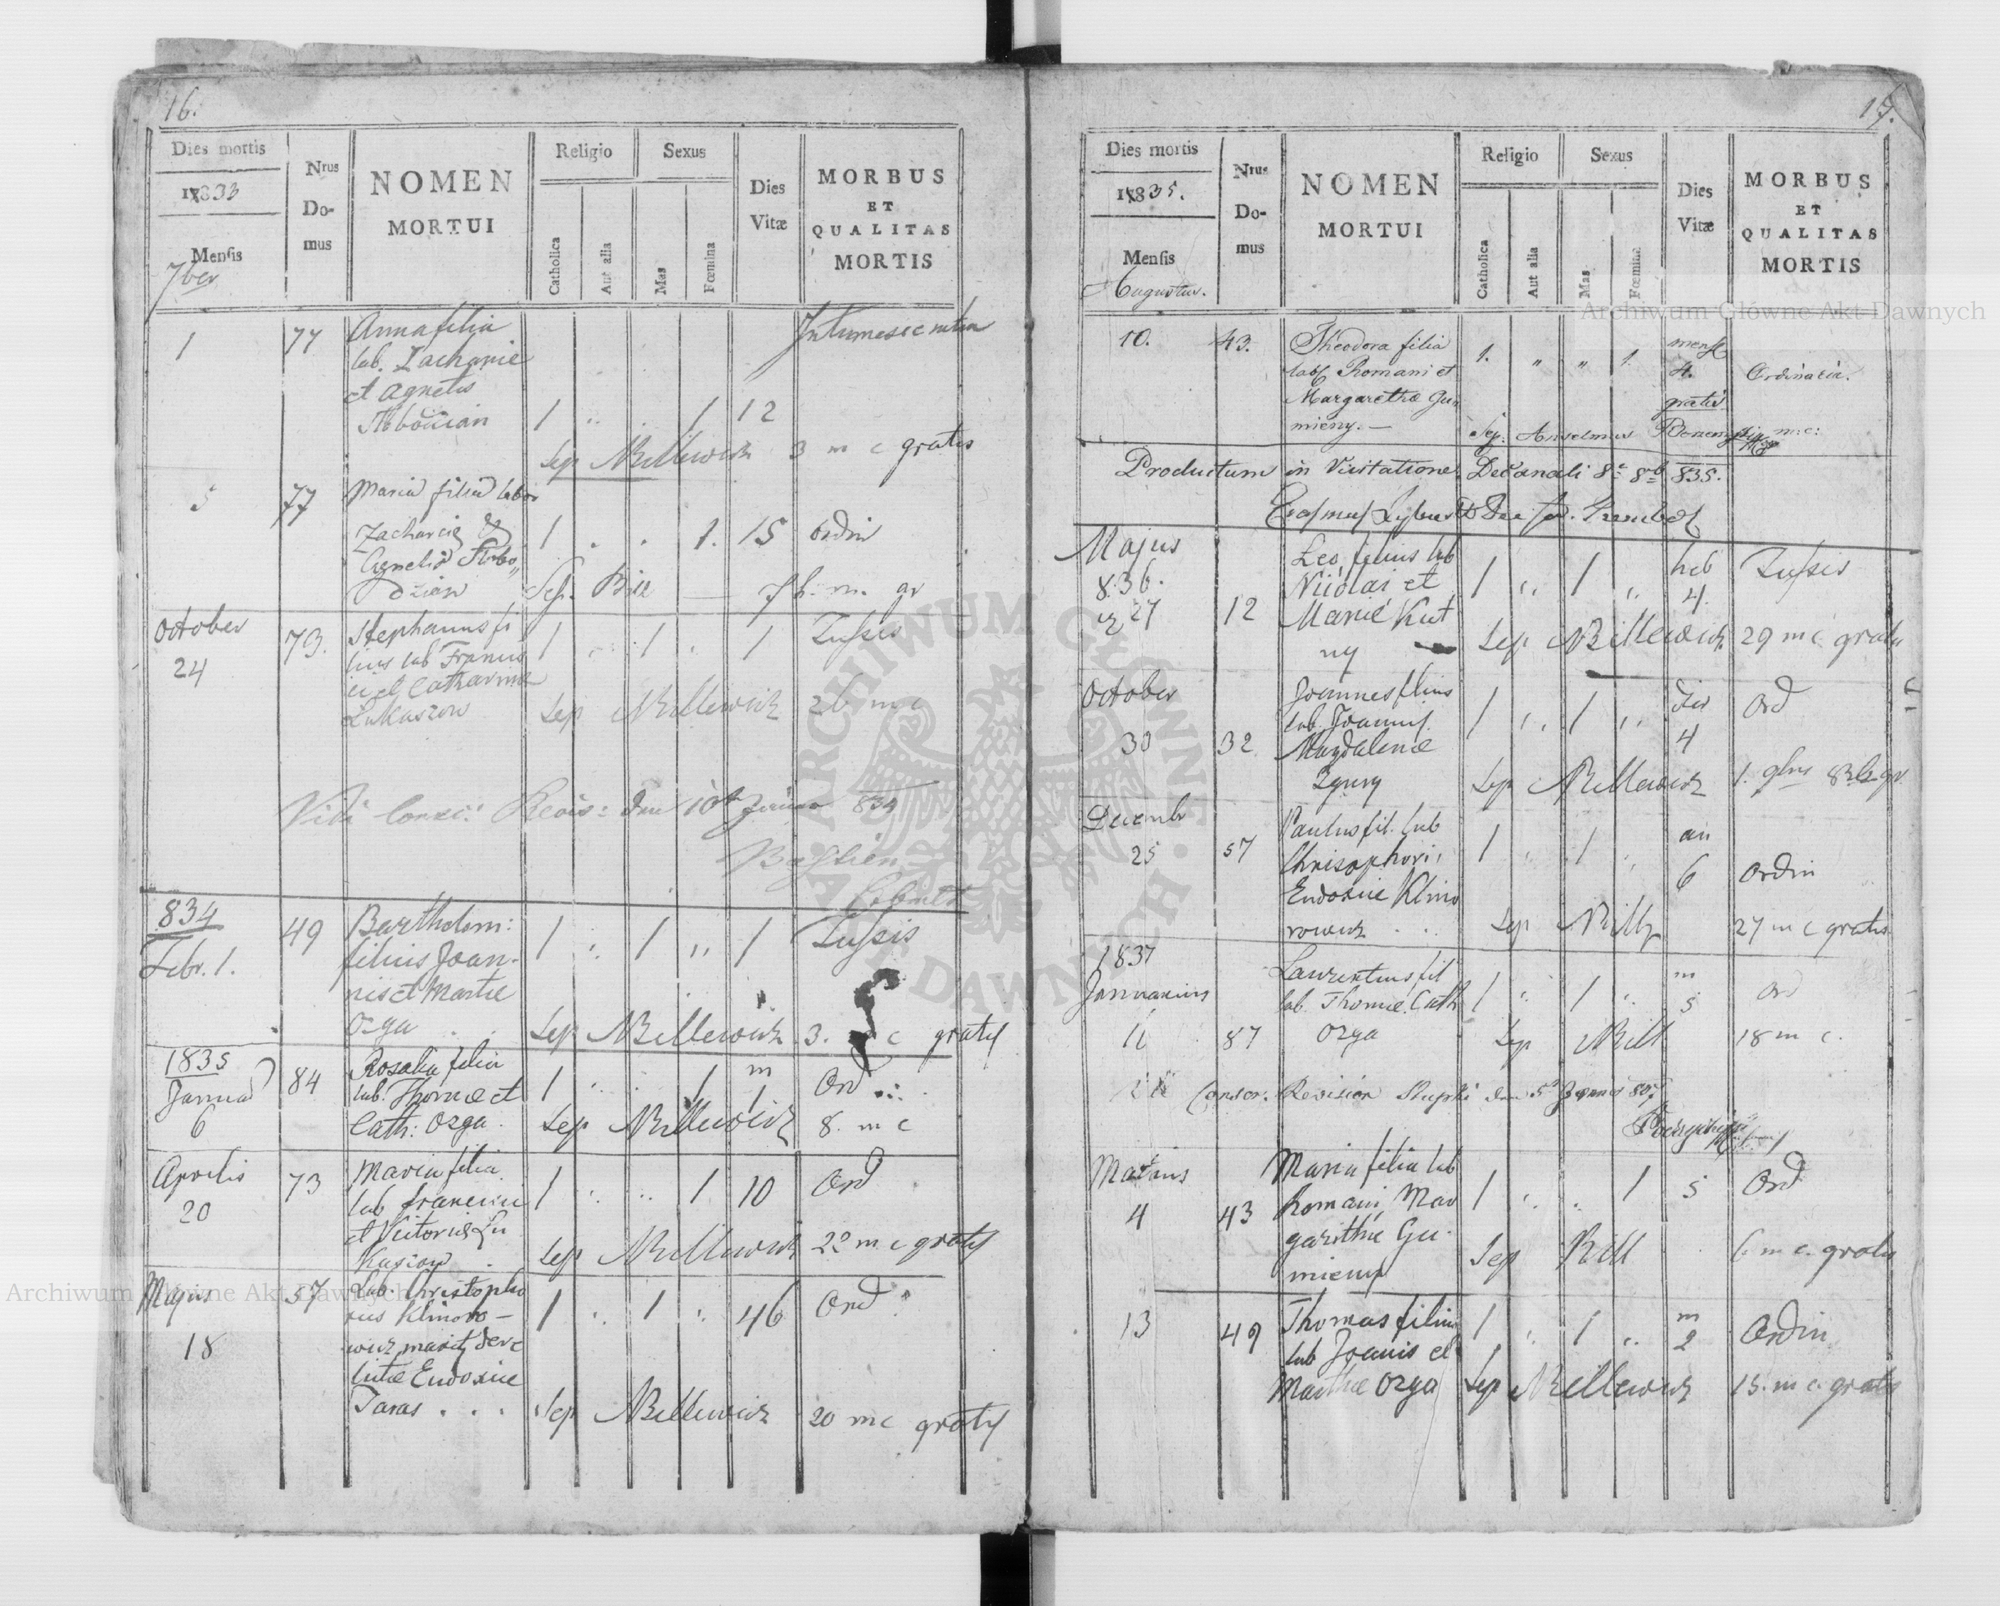 16.
Dies mortis
1833
Mensis
7ber
Nrus
Do-
mus
NOMEN
MORTUI
Religio
Catholica
Aut alia
Sexus
Mas
Fœmina
Dies
Vitæ
MORBUS
ET
QUALITAS
MORTIS
1 77 Anna filia
lab. Zachariæ
et Agnetis
1 " . 1 12
Sep NBillewicz 3 m c gratis
5 77 Maria filia labor
Zachariæ &
1 . . 1. 15 ordin
Sep. Bill
October
24
73. Stephanus fi
lius lab Francis
ci et Catharinæ
Lukaszow
1 " 1 . 1 Tussis
Sep NBillewicz 26 m c
Vidi
834
834
Febr. 1.
49 Bartholom:
filius Joan-
nis et Marthæ
Ozga
1 " 1 " 1 Tussis
Sep NBillewicz 3. m c gratis
1835
Januar
6
84 Rosalia filia
lab. Thomæ et
Cath: Ozga.
1 " . 1 m 1 Ord
Sep NBillewicz 8. m c
Aprilis
20
73 Maria filia
lab Francisci
et Victoriæ Lu
kasiow
1 " " 1 10 Ord
Sep NBillewicz 22 m c gratis
Majus
18
57 Lab. Christopho
rus Klimo
wicz
Eudoxiæ
Taras . . .
1 " 1 " 46 Ord
Sep NBillewicz 20 m c gratis
17.
Dies mortis
1835.
Mensis
Augustus.
Nrus
Do-
mus
NOMEN
MORTUI
Religio
Catholica
Aut alia
Sexus
Mas
Fœmina
Dies
Vitæ
MORBUS
ET
QUALITAS
MORTIS
10. 43. Theodora filia
lab. Romani et
Margarethæ Gu-
mieny. —
1. " " 1. mens
4. Ordinaria.
gratis
Sep: Anselmus m:c:
Productum in Visitatione Decanali 835.
Majus
836.
27 12
Leo, filius lab
Nicolai et
Mariæ Kut
ny
1 " 1 " heb
4. Tussis
Sep NBillewicz 29 m c gratis
October
30 32
Joannes filius
lab. Joannis
Magdalenæ
1 " 1 " dies
4 Ord
Sep NBillewicz
Decembr
25 57
Paulus fil. lab
Chrisophori,
Eudoxiæ Klimo
rowicz . .
1 " 1 . an
6 ordin
Sep NBill 27 m c gratis
1837
Januarius
11 87
Laurentius fil
lab. Thomæ Cath
Ozga
1 " 1 " m
5 Ord
Sep NBill 18 m c.
Martius
4 43
Maria filia lab
Romani, Mar
garithæ Gu-
mieny
1 " . 1 5 Ord
Sep NBill 6 m c. gratis
13 49
Thomas filius
lab Joanis et
Marthæ Ozga
1 " 1 " m
2 Ordin
Sep NBillewicz 15. m c. gratis
Archiwum Główne Akt Dawnych
Archiwum Główne Akt Dawnych
ARCHIWUM GŁÓWNE AKT DAWNYCH